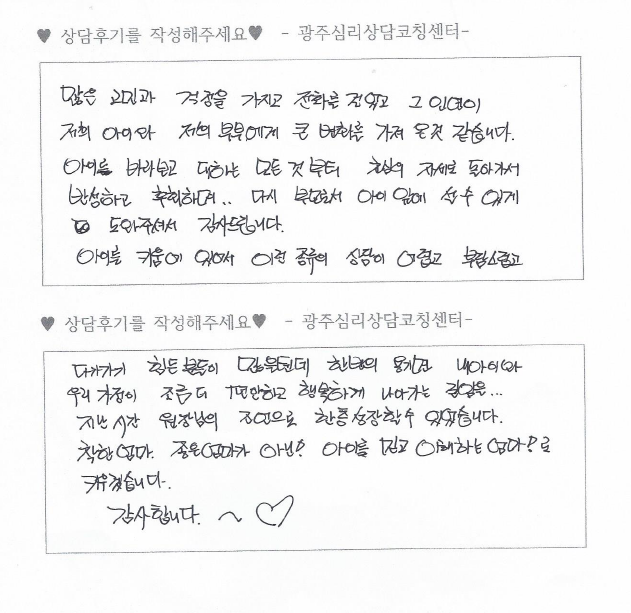 ♥ 상담후기를 작성해주세요♥ - 광주심리상담코칭센터-
많은 고민과 걱정을 가지고 전화를 걸었고 그 인연이
저희 아이와 저희 부부에게 큰 변화를 가져 온것 같습니다.
아이를 바라보고 대하는 모든 것부터 초심의 자세로 돌아가서
반성하고 후회하며.. 다시 부모로서 아이 앞에 설 수 있게
도와주셔서 감사드립니다.
아이를 키움에 있어서 이런 종류의 상담이 어렵고 부담스럽고
♥ 상담후기를 작성해주세요♥ - 광주심리상담코칭센터-
다가가기 힘든 분들이 많을텐데 한번의 용기로 내아이와
우리 가정이 조금 더 편안하고 행복하게 나아가는 길임을...
지난 시간 원장님의 조언으로 한층성장할수 있었습니다.
착한 엄마. 좋은엄마가 아닌? 아이를 믿고 이해하는 엄마?로
키우겠습니다.
감사합니다. ~ ♡